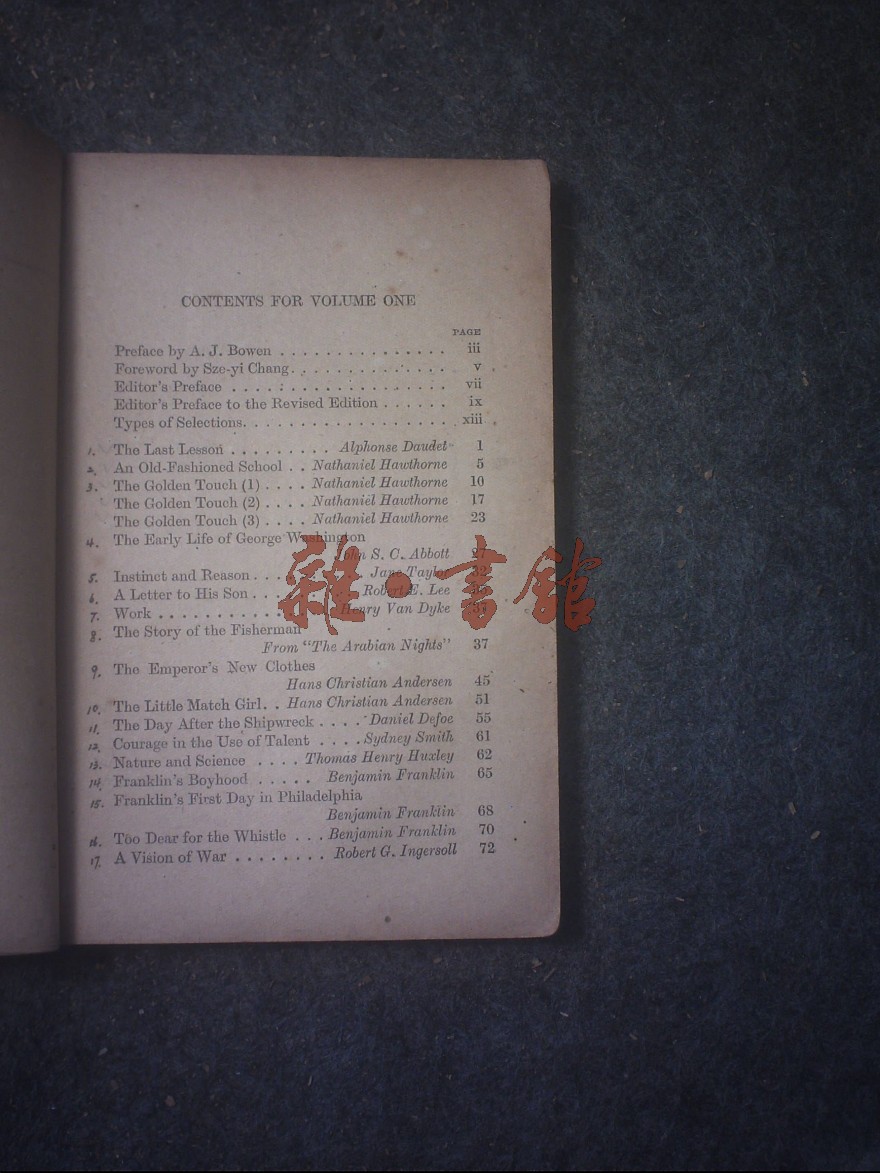 CONTENTS FOR VOLUME ONE
PAGE
Preface by A. J. Bowen . . . . . . . . . . . . . . . iii
Foreword by Sze-yi Chang. . . . . . . . . . . . . . v
Editor's Preface . . . . . . . . . . . . . . . . . . . vii
Editor's Preface to the Revised Edition . . . . . . ix
Types of Selections. . . . . . . . . . . . . . . . . . . xiii
1. The Last Lesson . . . . . . . . . Alphonse Daudet 1
2. An Old-Fashioned School . . Nathaniel Hawthorne 5
3. The Golden Touch (1) . . . . Nathaniel Hawthorne 10
The Golden Touch (2) . . . . Nathaniel Hawthorne 17
The Golden Touch (3) . . . . Nathaniel Hawthorne 23
4. The Early Life of George Washington
John S. C. Abbott 27
5. Instinct and Reason . . . . . . . . Jane Taylor 32
6. A Letter to His Son . . . . . . . . Robert E. Lee
7. Work . . . . . . . . . . . . . . Henry Van Dyke
8. The Story of the Fisherman
From "The Arabian Nights" 37
9. The Emperor's New Clothes
Hans Christian Andersen 45
10. The Little Match Girl. . Hans Christian Andersen 51
11. The Day After the Shipwreck . . . . Daniel Defoe 55
12. Courage in the Use of Talent . . . . Sydney Smith 61
13. Nature and Science . . . . Thomas Henry Huxley 62
14. Franklin's Boyhood . . . . . Benjamin Franklin 65
15. Franklin's First Day in Philadelphia
Benjamin Franklin 68
16. Too Dear for the Whistle . . . Benjamin Franklin 70
17. A Vision of War . . . . . . . . Robert G. Ingersoll 72
雜·書館